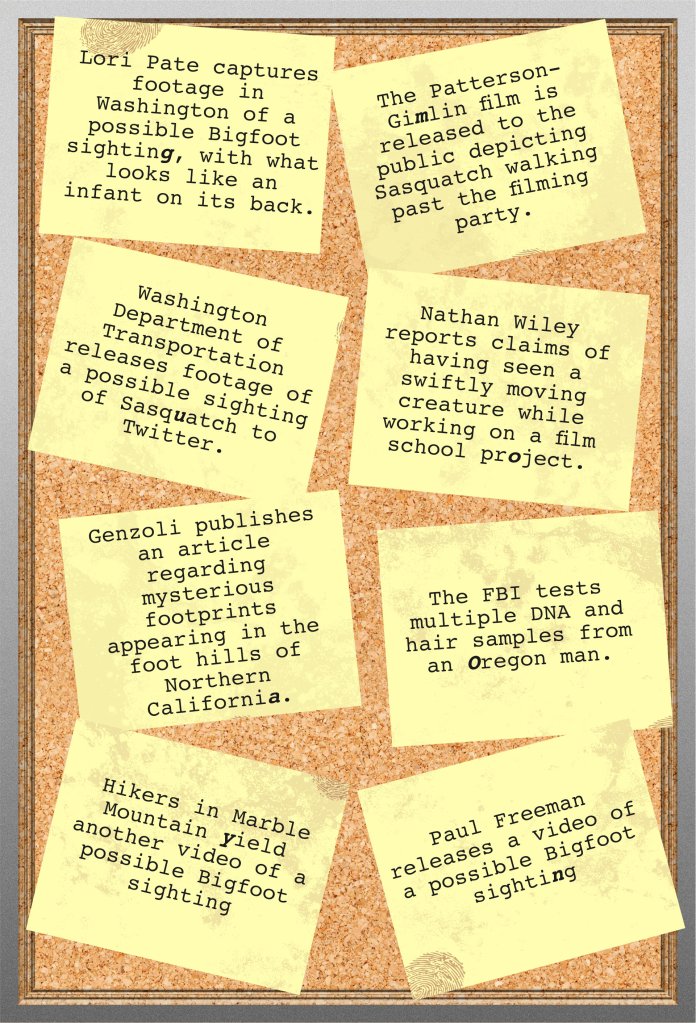 Lori Pate captures
footage in
Washington of a
possible Bigfoot
sighting, with what
looks like an
infant on its back.
The Patterson-
Gimlin film is
released to the
public depicting
Sasquatch walking
past the filming
party.
Washington
Department of
Transportation
releases footage of
a possible sighting
of Sasquatch to
Twitter.
Nathan Wiley
reports claims of
having seen a
swiftly moving
creature while
working on a film
school project.
Genzoli publishes
an article
regarding
mysterious
footprints
appearing in the
foot hills of
Northern
California.
The FBI tests
multiple DNA and
hair samples from
an Oregon man.
Hikers in Marble
Mountain yield
another video of a
possible Bigfoot
sighting
Paul Freeman
releases a video of
a possible Bigfoot
sighting